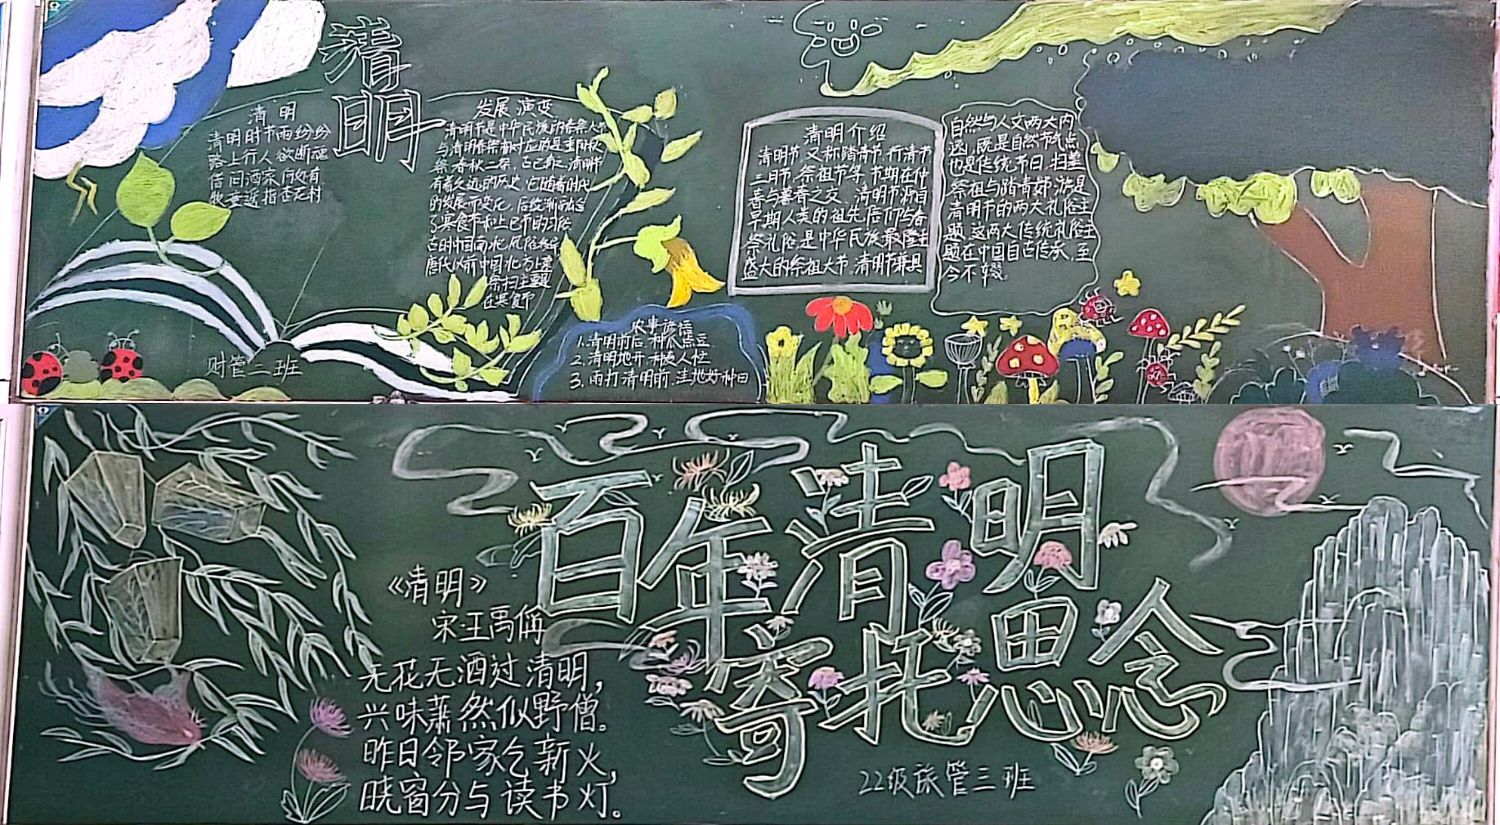 清明
清明
清明时节雨纷纷
路上行人欲断魂
借问酒家何处有
牧童遥指杏花村
发展演变
清明节是中华民族的春祭大节
与清明春祭相对应的是重阳秋
祭,春秋二祭,古已有之,清明节
有着久远的历史,它随着时代
的发展而变化,后续渐融合
了寒食节和上巳节的习俗
古时中国南北风俗
唐代以前中国北方
祭扫主题
在寒食节
财管三班
农事谚语
1.清明前后,种瓜点豆
2.清明地开 种 人忙
3.雨打清明前,洼地好种田
清明介绍
清明节,又称踏青节,行清节
三月节、祭祖节等,节期在仲
春与暮春之交,清明节源自
早期人类的祖先信仰与春
祭礼俗是中华民族最隆重
盛大的祭祖大节,清明节兼具
自然与人文两大内
涵,既是自然节气点
也是传统节日,扫墓
祭祖与踏青郊游是
清明节的两大礼俗主
题,这两大传统礼俗主
题在中国自古传承,至
今不辍。
百年清明
寄托思念
《清明》
宋·王禹偁
无花无酒过清明,
兴味萧然似野僧。
昨日邻家乞新火,
晓窗分与读书灯。
22级旅管三班